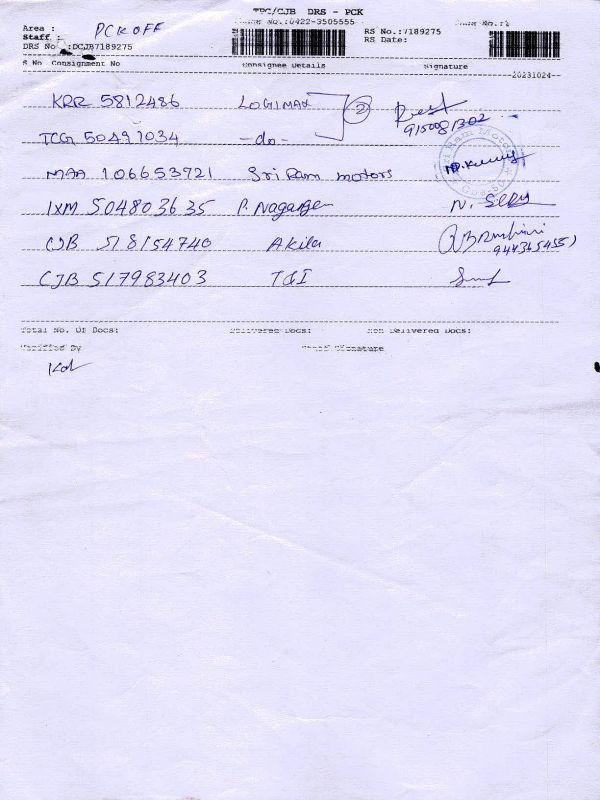 TPC/CJB DRS - PCK
Area : PCK OFF
Phone No.:0422-3505555
RS No.:7189275
Staff :
RS Date:
DRS No :DCJB7189275
S No Consignment No Consignee Details Signature
20231024
KRR 5812486 LOGIMAX 2
9150081302
TCG 50497034 -do-
MAA 106653721 Sri Ram motors
IXM 504803635 P. Nagarajan
CJB 518154740 Akila
CJB 517983403 TCI
Total No. Of Docs: Delivered Docs: Non Delivered Docs:
Verified By Staff Signature